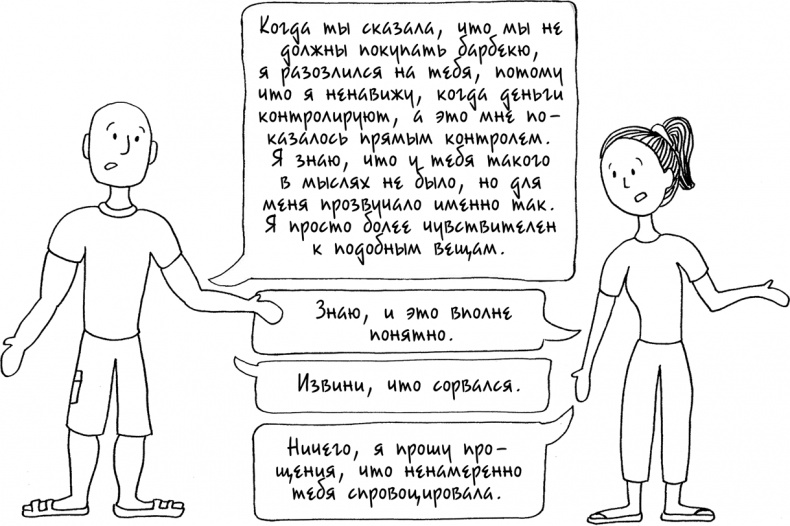 Когда ты сказала, что мы не
должны покупать барбекю,
я разозлился на тебя, потому
что я ненавижу, когда деньги
контролируют, а это мне по-
казалось прямым контролем.
Я знаю, что у тебя такого
в мыслях не было, но для
меня прозвучало именно так.
Я просто более чувствителен
к подобным вещам.
Знаю, и это вполне
понятно.
Извини, что сорвался.
Ничего, я прошу про-
щения, что ненамеренно
тебя спровоцировала.